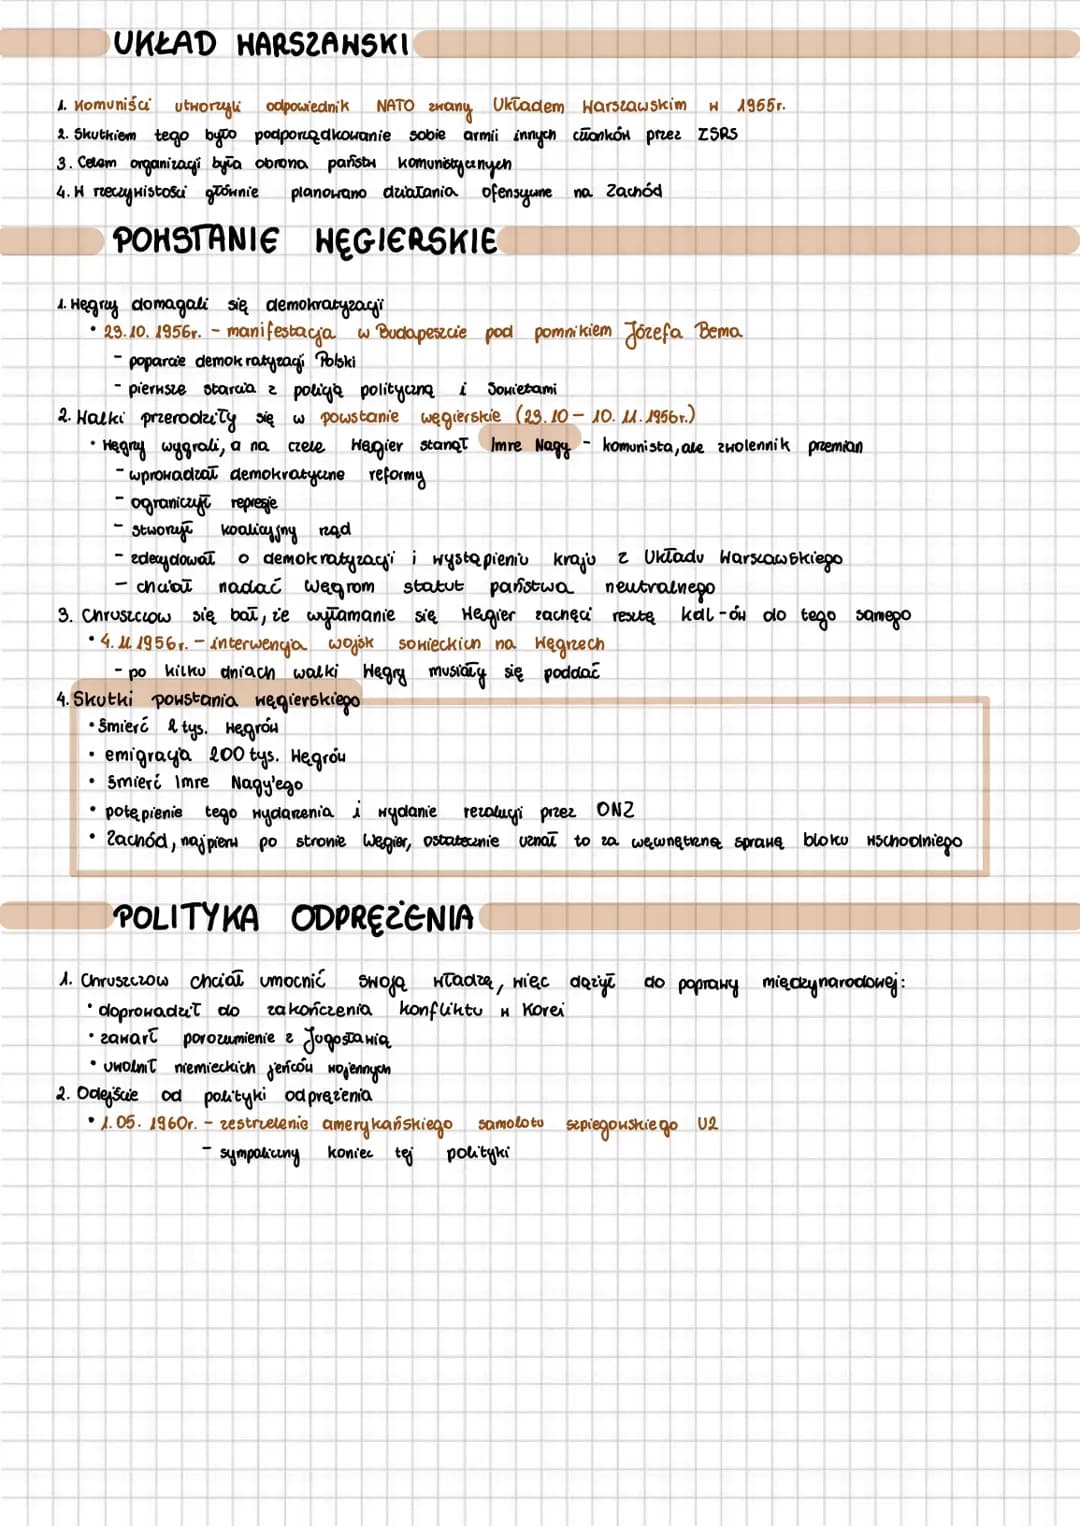 UKŁAD WARSZAWSKI
1. Komuniści utworzyli odpowiednik NATO zwany Układem Warszawskim w 1955r.
2. Skutkiem tego było podporządkowanie sobie armii innych członków przez ZSRS
3. Celem organizacji była obrona państw komunistycznych
4. W rzeczywistości głównie planowano działania ofensywne na Zachód
POWSTANIE WĘGIERSKIE
1. Węgrzy domagali się demokratyzacji
• 23.10.1956r. - manifestacja w Budapeszcie pod pomnikiem Józefa Bema
- poparcie demokratyzacji Polski
- pierwsze starcia z policją polityczną i Sowietami
2. Walki przerodziły się w powstanie węgierskie (23.10 - 10.11.1956r.)
• Węgry wygrali, a na czele Węgier stanął Imre Nagy - komunista, ale zwolennik przemian
- wprowadzał demokratyczne reformy
- ograniczył represje
- stworzył koalicyjny rząd
- zdecydował o demokratyzacji i wystąpieniu kraju z Układu Warszawskiego
- chciał nadać Węgrom statut państwa neutralnego
3. Chruszczow się bał, że wyłamanie się Węgier zachęci resztę kdl-ów do tego samego
• 4.11.1956r. - interwencja wojsk sowieckich na Węgrzech
- po kilku dniach walki Węgry musiały się poddać
4. Skutki powstania węgierskiego
• śmierć 2 tys. Węgrów
• emigracja 200 tys. Węgrów
• śmierć Imre Nagy'ego
• potępienie tego wydarzenia i wydanie rezolucji przez ONZ
• Zachód, najpierw po stronie Węgier, ostatecznie uznał to za wewnętrzną sprawę bloku wschodniego
POLITYKA ODPRĘŻENIA
1. Chruszczow chciał umocnić swoją władzę, więc dążył do poprawy międzynarodowej:
• doprowadził do zakończenia konfliktu w Korei
• zawarł porozumienie z Jugosławią
• uwolnił niemieckich jeńców wojennych
2. Odejście od polityki odprężenia
• 1.05.1960r. - zestrzelenie amerykańskiego samolotu szpiegowskiego U2
- sympoliczny koniec tej polityki